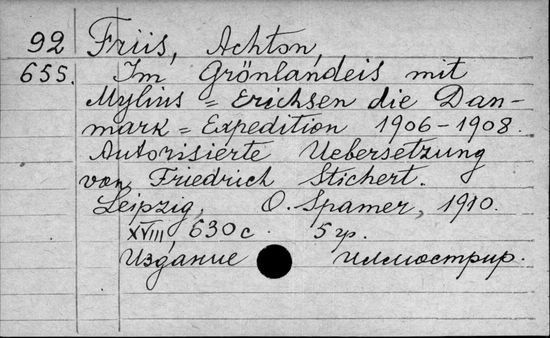 92 Friis, Achton,
655. Im Grönlandeis mit
Mylius = Erichsen die Dan-
mark = Expedition 1906-1908.
Autorisierte Uebersetzung
von Friedrich Stichert.
Leipzig, O. Spamer, 1910.
XVIII, 630 с. 5 гр.
Издание иллюстрир.